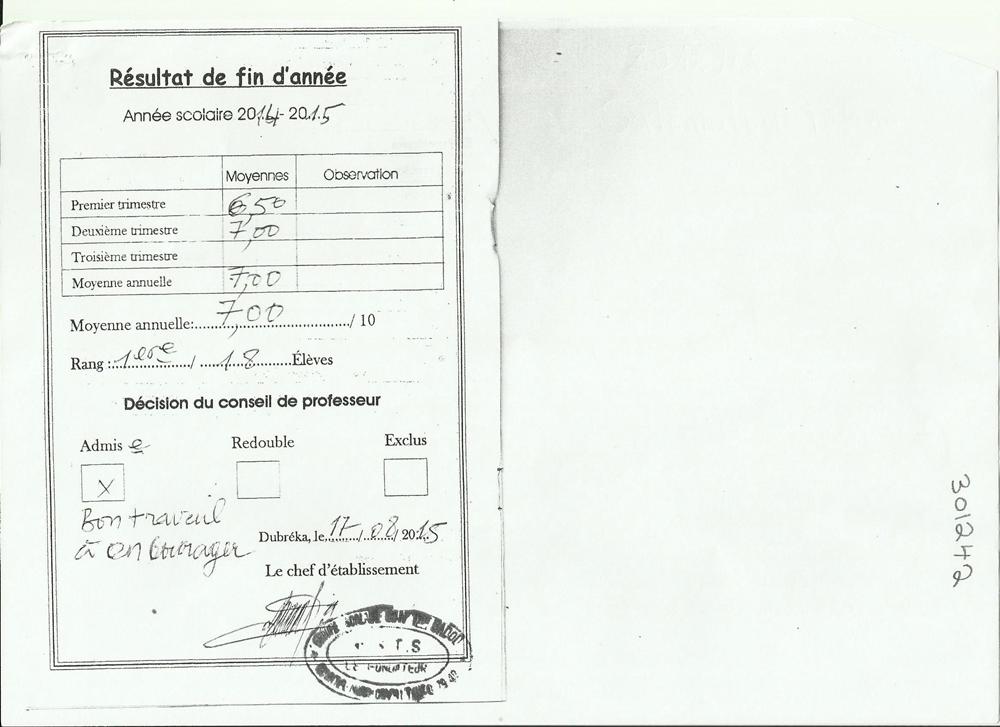 Résultat de fin d'année
Année scolaire 2014- 2015
Moyennes Observation
Premier trimestre 6,50
Deuxième trimestre 7,00
Troisième trimestre
Moyenne annuelle 7,00
Moyenne annuelle:....7,00..../ 10
Rang :..1ere..../ ....18......Élèves
Décision du conseil de professeur
Admis e Redouble Exclus
X
Bon travail
à encourager
Dubréka, le..17../..08./ 2015
Le chef d'établissement
T.S
LE FONDATEUR
301242